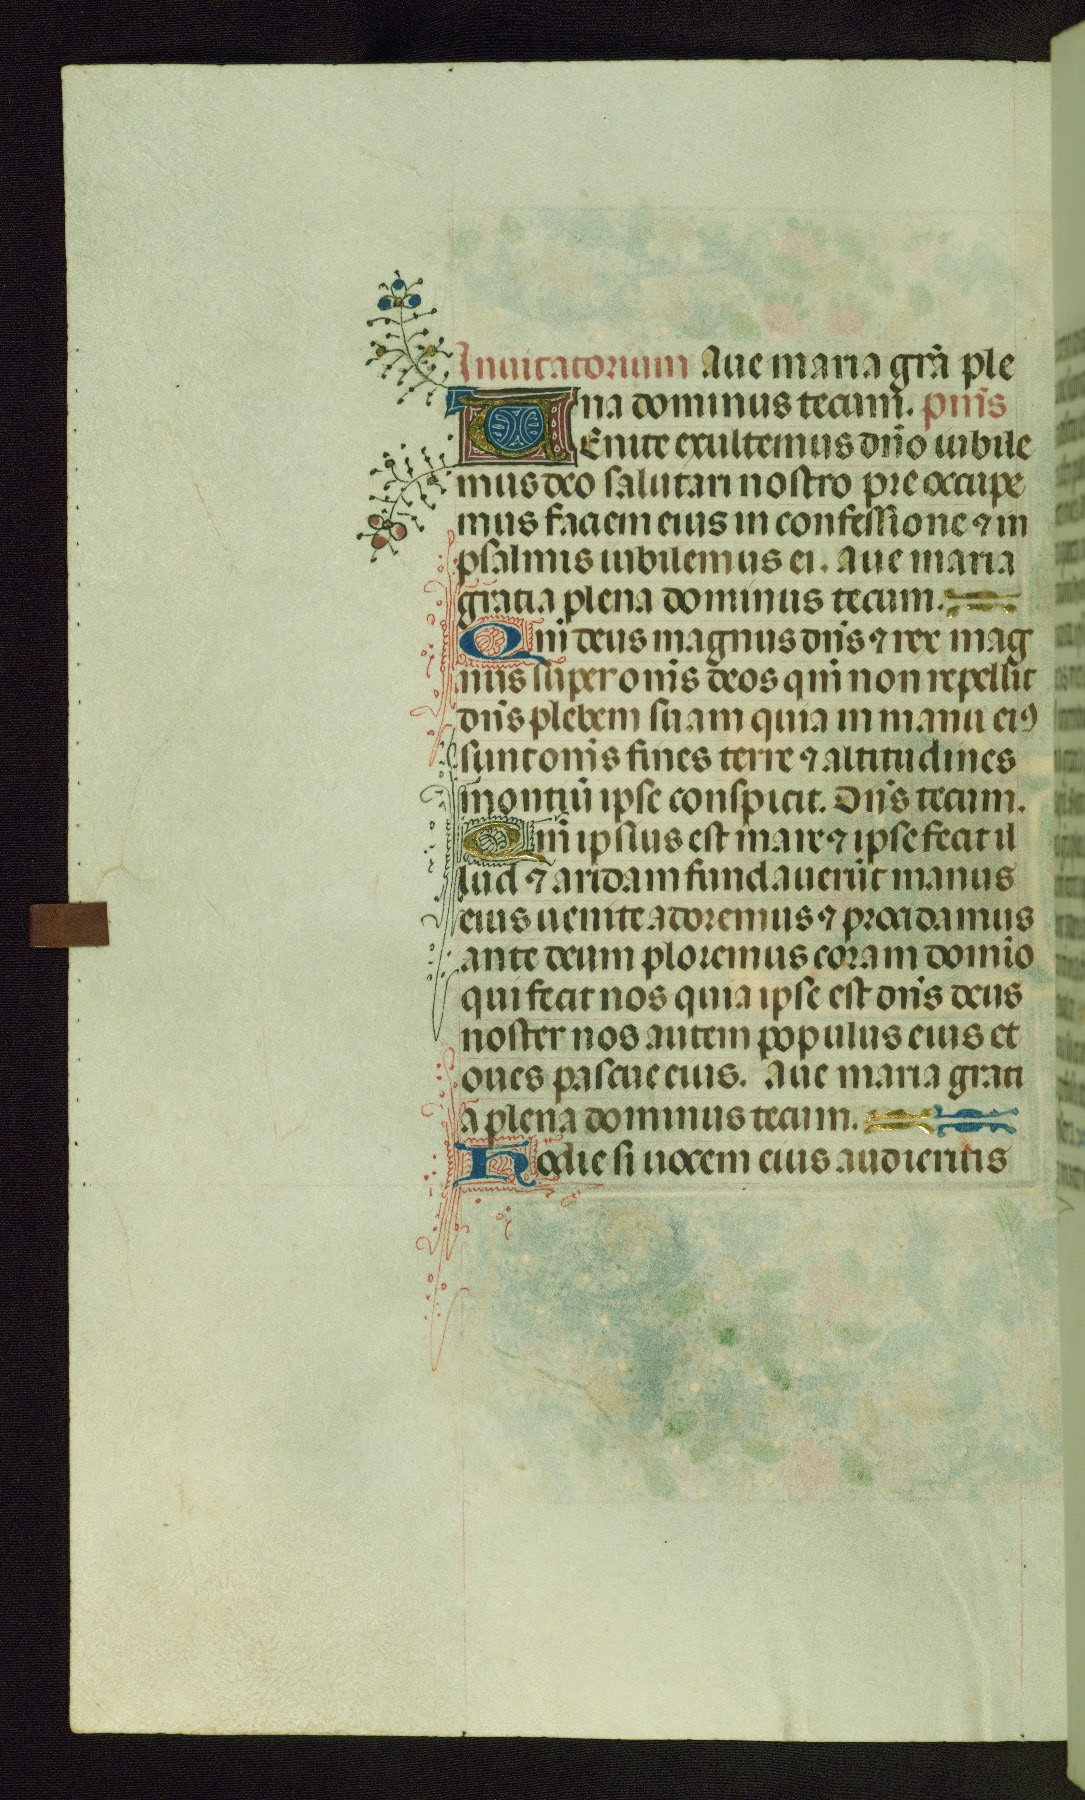 Inuitatorium Aue maria grā ple
na dominus tecum. psīs
VEnite exultemus dn̄o iubile
mus deo salutari nostro pre occupe
mus faciem eius in confessione ⁊ in
psalmis iubilemus ei. Aue maria
gratia plena dominus tecum.
Qm̄ deus magnus dn̄s ⁊ rex mag
nus super om̄s deos qm̄ non repellit
dn̄s plebem suam quia in manu eiꝰ
sunt om̄s fines terre ⁊ altitudines
montiū ipse conspicit. Dn̄s tecum.
Qm̄ ipsius est mare ⁊ ipse fecit il
lud ⁊ aridam fundauerūt manus
eius uenite adoremus ⁊ procidamus
ante deum ploremus coram domīo
qui fecit nos quia ipse est dn̄s deus
noster nos autem populus eius et
oues pascue eius. Aue maria grati
a plena dominus tecum.
Hodie si uocem eius audieritis